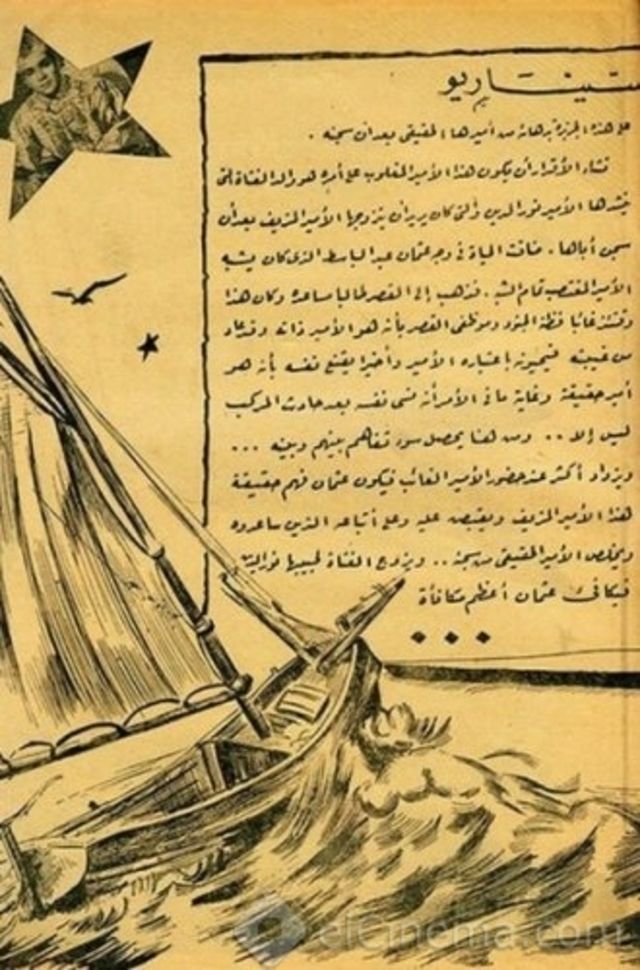 ستيناريو
على هذه الجزيرة برهانه من أميرها الحقيقى بعد ان سجنه .
تشاء الأقدار أن يكون هذا الأمير المغلوب على أمره هو والد الفتاة التى
الأمير نور الدين والتى كان يريد أن يتزوجها الأمير المزيف بعد أن
سجن أباها . ضاقت الحياة فى وجه عثمان عبد الباسط الذى كان يشبه
الأمير المغتصب تمام الشبه . فذهب إلى القصر طالبا مساعدة وكان هذا
غائبا فظنه الجنود وموظفى القصر بأنه هو الأمير ذاته وقد عاد
من غيبته فيحيونه باعتباره الأمير وأخيرا يقتنع نفسه بأنه هو
أمير حقيقة وغاية ما فى الأمر أنه نسى نفسه بعد حادث المركب
ليس إلا .. ومن هنا يحصل سوء تفاهم بينهم وبينه ...
ويزداد أكثر عند حضور الأمير الغائب فيكون عثمان فهم حقيقة
هذا الأمير المزيف ويقبض عليه وعلى أتباعه الذين ساعدوه
ويخلص الأمير الحقيقى من سجنه .. ويزوج الفتاة لحبيبها نور الدين
فيكافئ عثمان أعظم مكافأة
elcinema.com